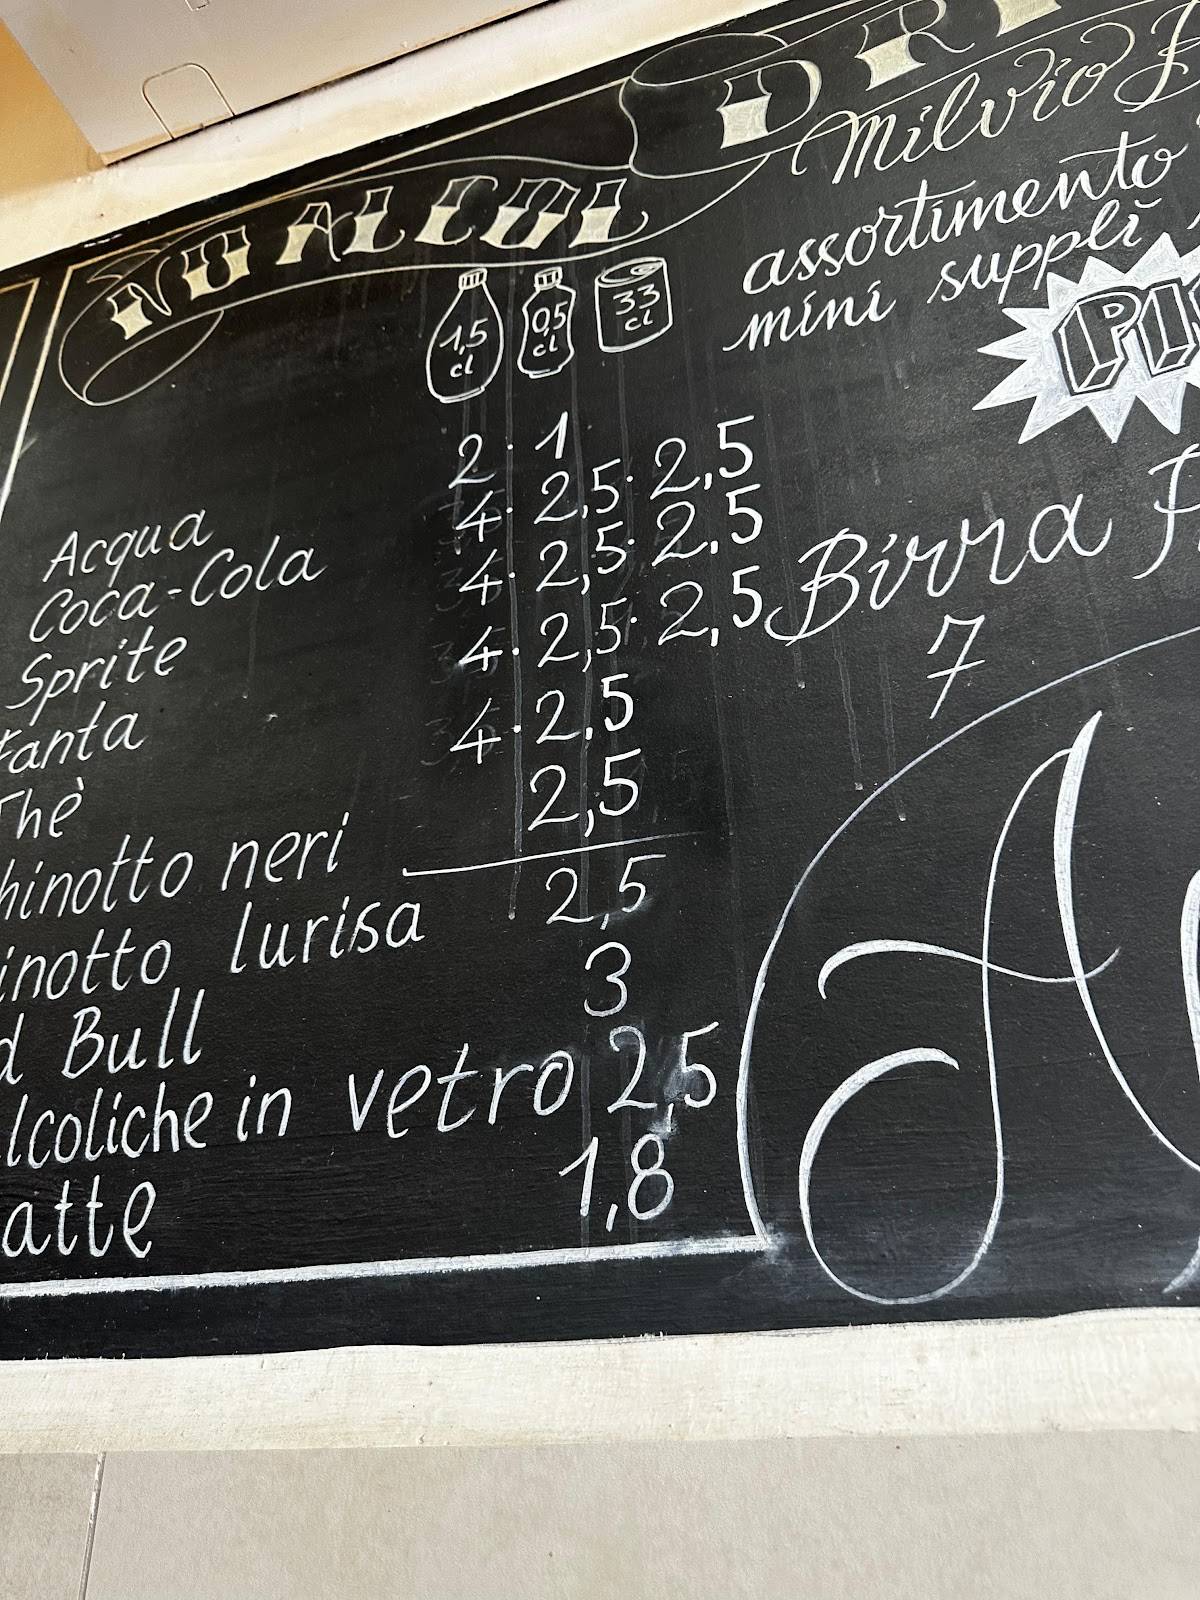 NO ALCOL
1,5 cl
0,5 cl
33 cl
Acqua 2 · 1
Coca-Cola 4 · 2,5 · 2,5
Sprite 4 · 2,5 · 2,5
Fanta 4 · 2,5 · 2,5
Thè 4 · 2,5
hinotto neri 2,5
inotto lurisa 2,5
d Bull 3
lcoliche in vetro 2,5
atte 1,8
DRI
Milvio
assortimento
mini supplì
Birra
7